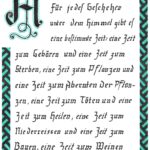 Für jedes Geschehen
unter dem Himmel gibt es
eine bestimmte Zeit: eine Zeit
zum Gebären und eine Zeit zum
Sterben, eine Zeit zum Pflanzen und
eine Zeit zum Abernten der Pflan-
zen, eine Zeit zum Töten und eine
Zeit zum Heilen, eine Zeit zum
Niederreissen und eine Zeit zum
Bauen, eine Zeit zum Weinen